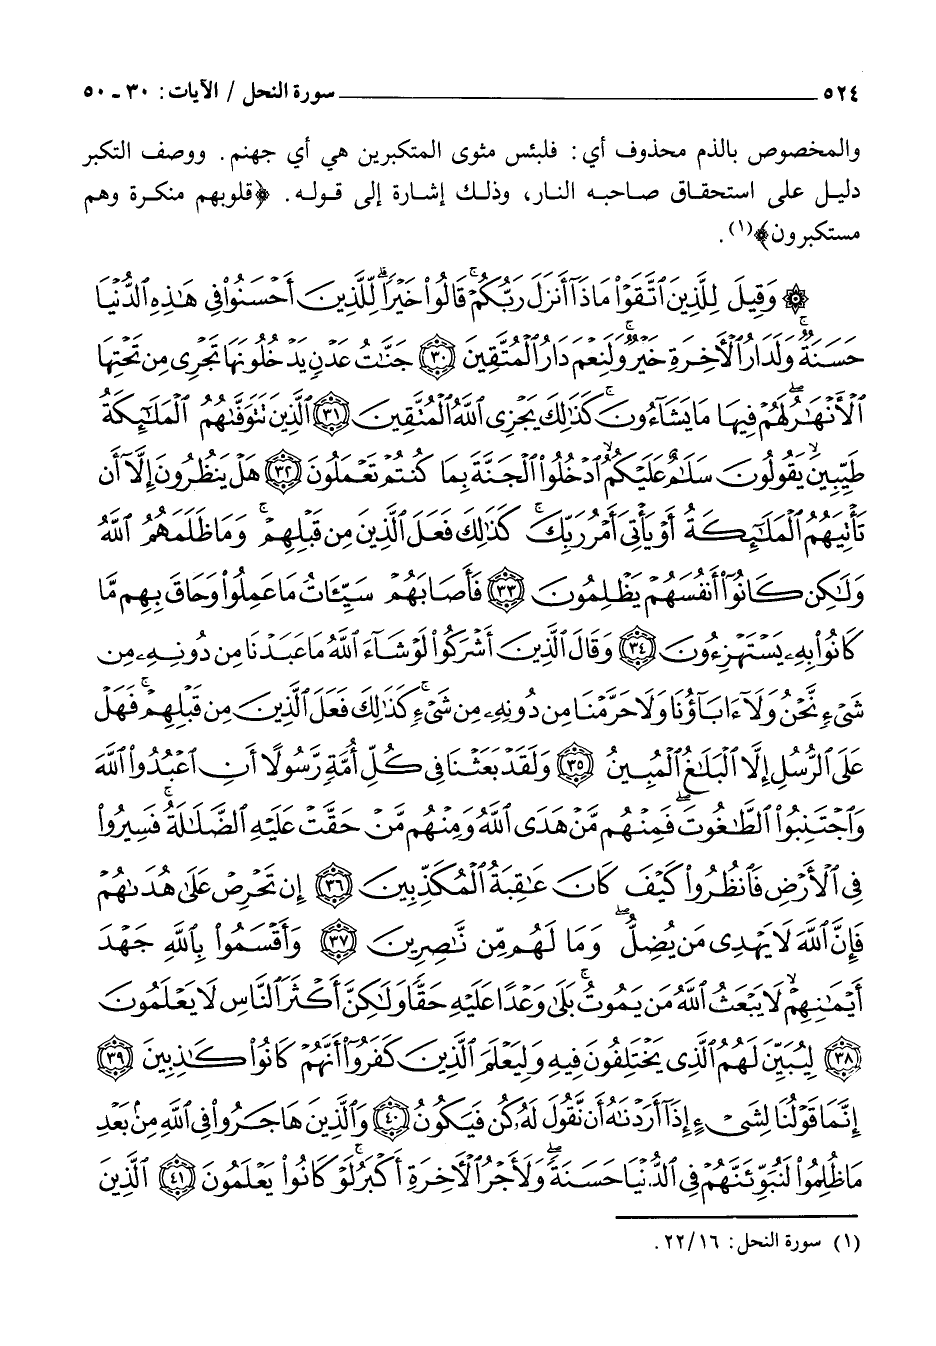 ٥٢٤ ــــــــــــــــــــــــــــــــــــــــ سورة النحل / الآيات: ٣٠ ـ ٥٠
والمخصوص بالذم محذوف أي: فلبئس مثوى المتكبرين هي أي جهنم. ووصف التكبر
دليل على استحقاق صاحبه النار، وذلك إشارة إلى قوله. ﴿قلوبهم منكرة وهم
مستكبرون﴾(١).
۞ وَقِيلَ لِلَّذِينَ ٱتَّقَوْا۟ مَاذَآ أَنزَلَ رَبُّكُمْ ۚ قَالُوا۟ خَيْرًا ۗ لِّلَّذِينَ أَحْسَنُوا۟ فِى هَٰذِهِ ٱلدُّنْيَا
حَسَنَةٌ ۚ وَلَدَارُ ٱلْأَخِرَةِ خَيْرٌ ۚ وَلَنِعْمَ دَارُ ٱلْمُتَّقِينَ ﴿٣٠﴾ جَنَّٰتُ عَدْنٍ يَدْخُلُونَهَا تَجْرِى مِن تَحْتِهَا
ٱلْأَنْهَٰرُ ۖ لَهُمْ فِيهَا مَا يَشَآءُونَ ۚ كَذَٰلِكَ يَجْزِى ٱللَّهُ ٱلْمُتَّقِينَ ﴿٣١﴾ ٱلَّذِينَ تَتَوَفَّىٰهُمُ ٱلْمَلَٰٓئِكَةُ
طَيِّبِينَ ۙ يَقُولُونَ سَلَٰمٌ عَلَيْكُمُ ۙ ٱدْخُلُوا۟ ٱلْجَنَّةَ بِمَا كُنتُمْ تَعْمَلُونَ ﴿٣٢﴾ هَلْ يَنظُرُونَ إِلَّآ أَن
تَأْتِيَهُمُ ٱلْمَلَٰٓئِكَةُ أَوْ يَأْتِىَ أَمْرُ رَبِّكَ ۚ كَذَٰلِكَ فَعَلَ ٱلَّذِينَ مِن قَبْلِهِمْ ۚ وَمَا ظَلَمَهُمُ ٱللَّهُ
وَلَٰكِن كَانُوٓا۟ أَنفُسَهُمْ يَظْلِمُونَ ﴿٣٣﴾ فَأَصَابَهُمْ سَيِّـَٔاتُ مَا عَمِلُوا۟ وَحَاقَ بِهِم مَّا
كَانُوا۟ بِهِۦ يَسْتَهْزِءُونَ ﴿٣٤﴾ وَقَالَ ٱلَّذِينَ أَشْرَكُوا۟ لَوْ شَآءَ ٱللَّهُ مَا عَبَدْنَا مِن دُونِهِۦ مِن
شَىْءٍ نَّحْنُ وَلَآ ءَابَآؤُنَا وَلَا حَرَّمْنَا مِن دُونِهِۦ مِن شَىْءٍ ۚ كَذَٰلِكَ فَعَلَ ٱلَّذِينَ مِن قَبْلِهِمْ ۚ فَهَلْ
عَلَى ٱلرُّسُلِ إِلَّا ٱلْبَلَٰغُ ٱلْمُبِينُ ﴿٣٥﴾ وَلَقَدْ بَعَثْنَا فِى كُلِّ أُمَّةٍ رَّسُولًا أَنِ ٱعْبُدُوا۟ ٱللَّهَ
وَٱجْتَنِبُوا۟ ٱلطَّٰغُوتَ ۖ فَمِنْهُم مَّنْ هَدَى ٱللَّهُ وَمِنْهُم مَّنْ حَقَّتْ عَلَيْهِ ٱلضَّلَٰلَةُ ۚ فَسِيرُوا۟
فِى ٱلْأَرْضِ فَٱنظُرُوا۟ كَيْفَ كَانَ عَٰقِبَةُ ٱلْمُكَذِّبِينَ ﴿٣٦﴾ إِن تَحْرِصْ عَلَىٰ هُدَىٰهُمْ
فَإِنَّ ٱللَّهَ لَا يَهْدِى مَن يُضِلُّ ۖ وَمَا لَهُم مِّن نَّٰصِرِينَ ﴿٣٧﴾ وَأَقْسَمُوا۟ بِٱللَّهِ جَهْدَ
أَيْمَٰنِهِمْ ۙ لَا يَبْعَثُ ٱللَّهُ مَن يَمُوتُ ۚ بَلَىٰ وَعْدًا عَلَيْهِ حَقًّا وَلَٰكِنَّ أَكْثَرَ ٱلنَّاسِ لَا يَعْلَمُونَ
﴿٣٨﴾ لِيُبَيِّنَ لَهُمُ ٱلَّذِى يَخْتَلِفُونَ فِيهِ وَلِيَعْلَمَ ٱلَّذِينَ كَفَرُوٓا۟ أَنَّهُمْ كَانُوا۟ كَٰذِبِينَ ﴿٣٩﴾
إِنَّمَا قَوْلُنَا لِشَىْءٍ إِذَآ أَرَدْنَٰهُ أَن نَّقُولَ لَهُۥ كُن فَيَكُونُ ﴿٤٠﴾ وَٱلَّذِينَ هَاجَرُوا۟ فِى ٱللَّهِ مِنۢ بَعْدِ
مَا ظُلِمُوا۟ لَنُبَوِّئَنَّهُمْ فِى ٱلدُّنْيَا حَسَنَةً ۖ وَلَأَجْرُ ٱلْأَخِرَةِ أَكْبَرُ ۚ لَوْ كَانُوا۟ يَعْلَمُونَ ﴿٤١﴾ ٱلَّذِينَ
(١) سورة النحل: ٢٢/١٦.